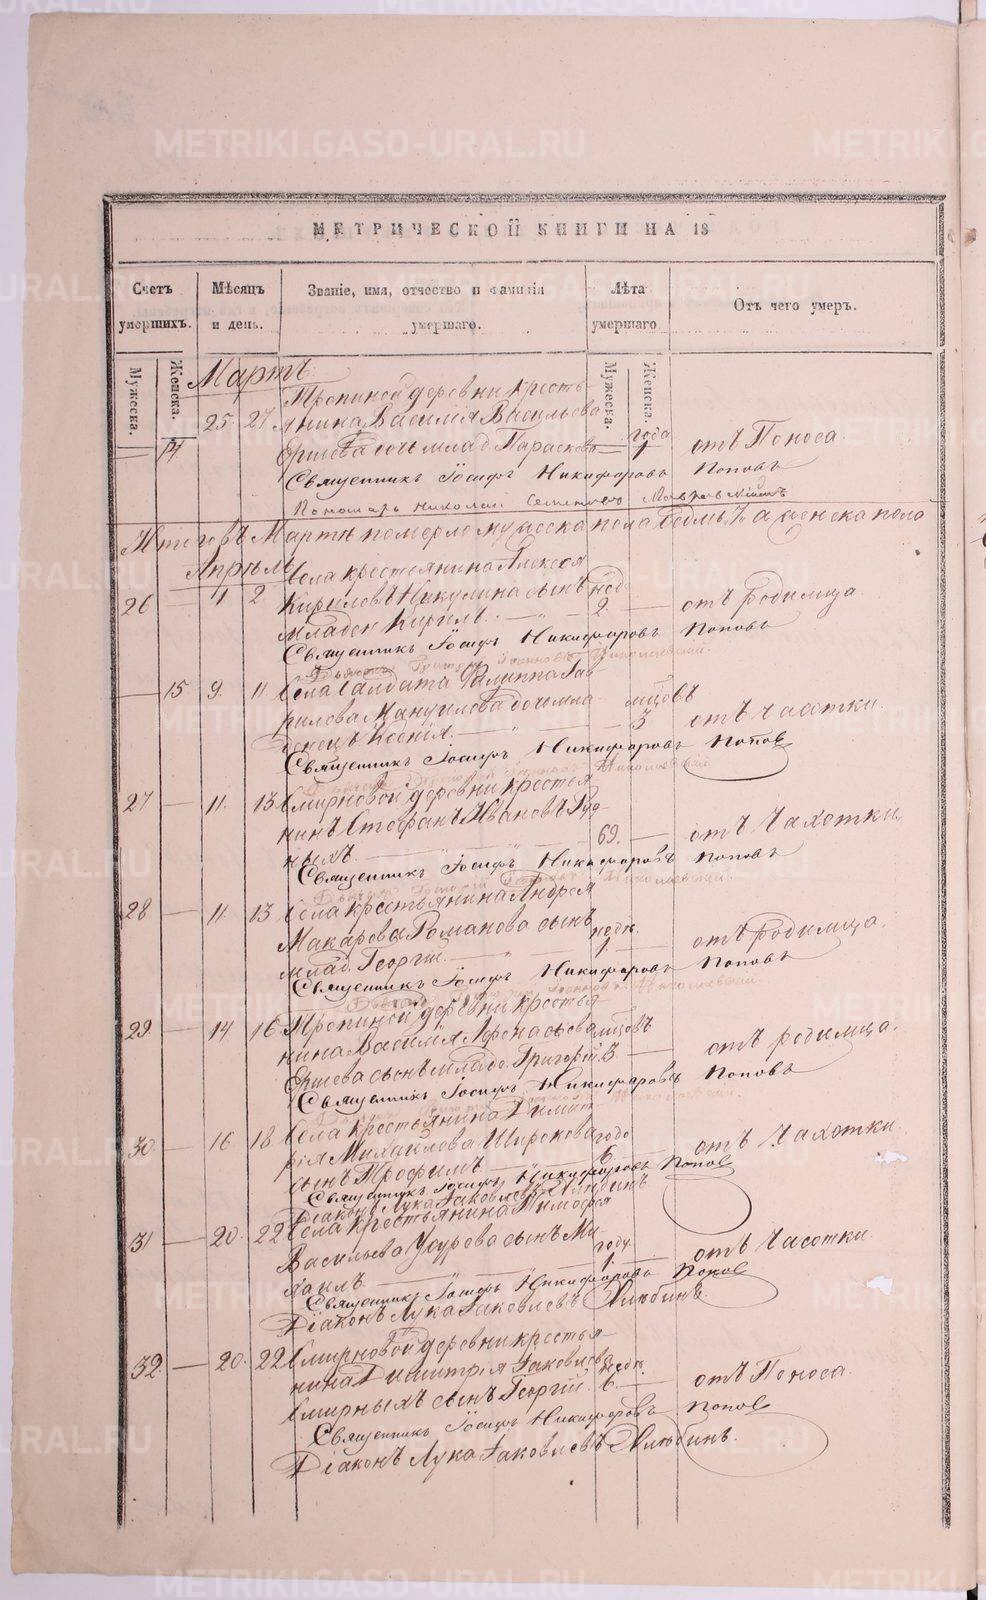 МЕТРИЧЕСКОЙ КНИГИ НА 18
Счетъ умершихъ.
Мѣсяцъ и день.
Званіе, имя, отчество и фамилія умершаго.
Лѣта умершаго
Отъ чего умеръ.
Мужеска.
Женска.
Мужеска.
Женска.
Мартъ
Тропиной деревни кресть-
25 27 янина Василія Васильева года
— 14 Ершева дочь млад. Параскева — 1 отъ Поноса
Священникъ Іосифъ Никифоровъ Поповъ
Пономарь Николай
Итого въ Мартѣ померло мужеска пола женска пола
Апрѣль
Села крестьянина Алексѣя
26 — 1 2 Кирилова Никулина сынъ нед.
младен. Кирилъ — 2. — отъ родимца
Священникъ Іосифъ Никифоровъ Поповъ
— 15 9. 11. Села Салдата Филиппа Гав-
рилова Мануилова дочь мла- мцовъ
денецъ Ксенія. — 3 отъ Чахотки.
Священникъ Іосифъ Никифоровъ Поповъ
27 — 11. 13 Смирновой деревни крестья-
нинъ Стефанъ Ивановъ
69. — отъ Чахотки,
Священникъ Іосифъ Никифоровъ Поповъ
28 — 11 13 Села крестьянина Андрея
Макарова Романова сынъ недѣ.
млад. Георгій. — 1 — отъ родимца.
Священникъ Іосифъ Никифоровъ Поповъ
29. — 14 16 Тропиной деревни крестья-
нина Василія Афонасьева мцовъ
Ершева сынъ млад. Григорій 3. — отъ родимца.
Священникъ Іосифъ Никифоровъ Поповъ
30. 16 18 Села крестьянина Димит-
рія Михаилова Широкова годо
сынъ Трофимъ — 6. отъ Чахотки.
Священникъ Іосифъ Никифоровъ Поповъ
Діаконъ Лука Іаковлевъ
31 — 20. 22 Села крестьянина Тимофея
Васильева сынъ Ми- году
хаилъ. — 1. отъ Чахотки.
Священникъ Іосифъ Никифоровъ Поповъ
Діаконъ Лука Іаковлевъ
32. — 20. 22 Смирновой деревни крестья-
нина Димитрія Іаковлева недѣ.
Смирныхъ сынъ Георгій. 6. — отъ Поноса.
Священникъ Іосифъ Никифоровъ Поповъ
Діаконъ Лука Іаковлевъ
METRIKI.GASO-URAL.RU